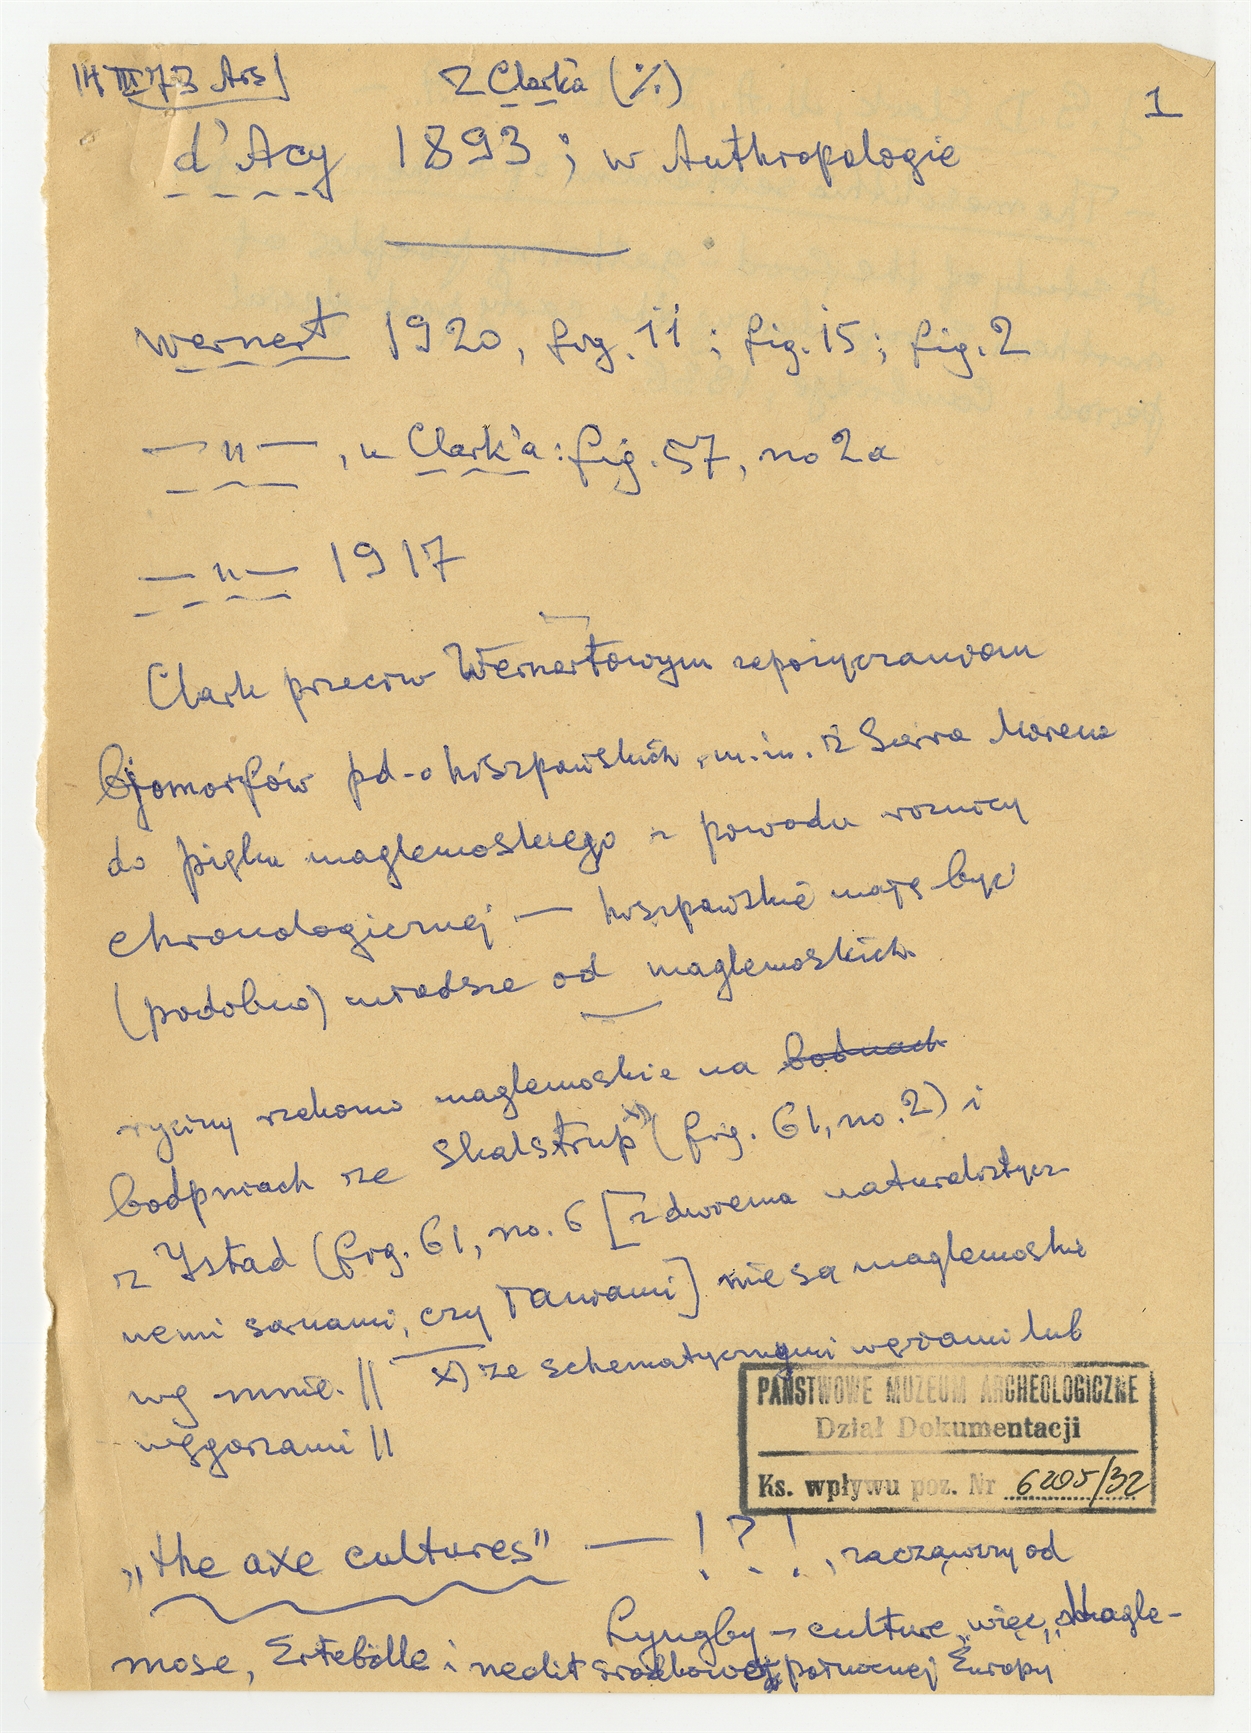 III 73 Ars]
Z Clark'a (%)
1
d'Acy 1893; w Anthropologie
Wernert 1920, fig. 11; fig. 15; fig. 2
—"—, u Clark'a: fig. 57, no 2a
—"— 1917
Clark przeciw Wernertowym zapożyczaniom
bijomorfów pd-o hiszpańskich m.in. z Sierra Morena
do piętna maglemoskiego z powodu różnicy
chronologicznej — hiszpańskie mają być
(podobno) młodsze od maglemoskich
ryciny rzekomo maglemoskie na
bodpniach ze Skalstrup x) (fig. 61, no. 2) i
z Ystad (fig. 61, no. 6 [z dwiema naturalistycz-
nemi sarnami, czy łaniami] nie są maglemoskie
wg mnie. || x) ze schematycznymi wężami lub
węgorzami ||
PAŃSTWOWE MUZEUM ARCHEOLOGICZNE
Dział Dokumentacji
Ks. wpływu poz. Nr 6205/32
„the axe cultures" — !?!, zacząwszy od
Lyngby-culture, więc, Magle-
mose, Ertebölle i neolit środkowej północnej Europy